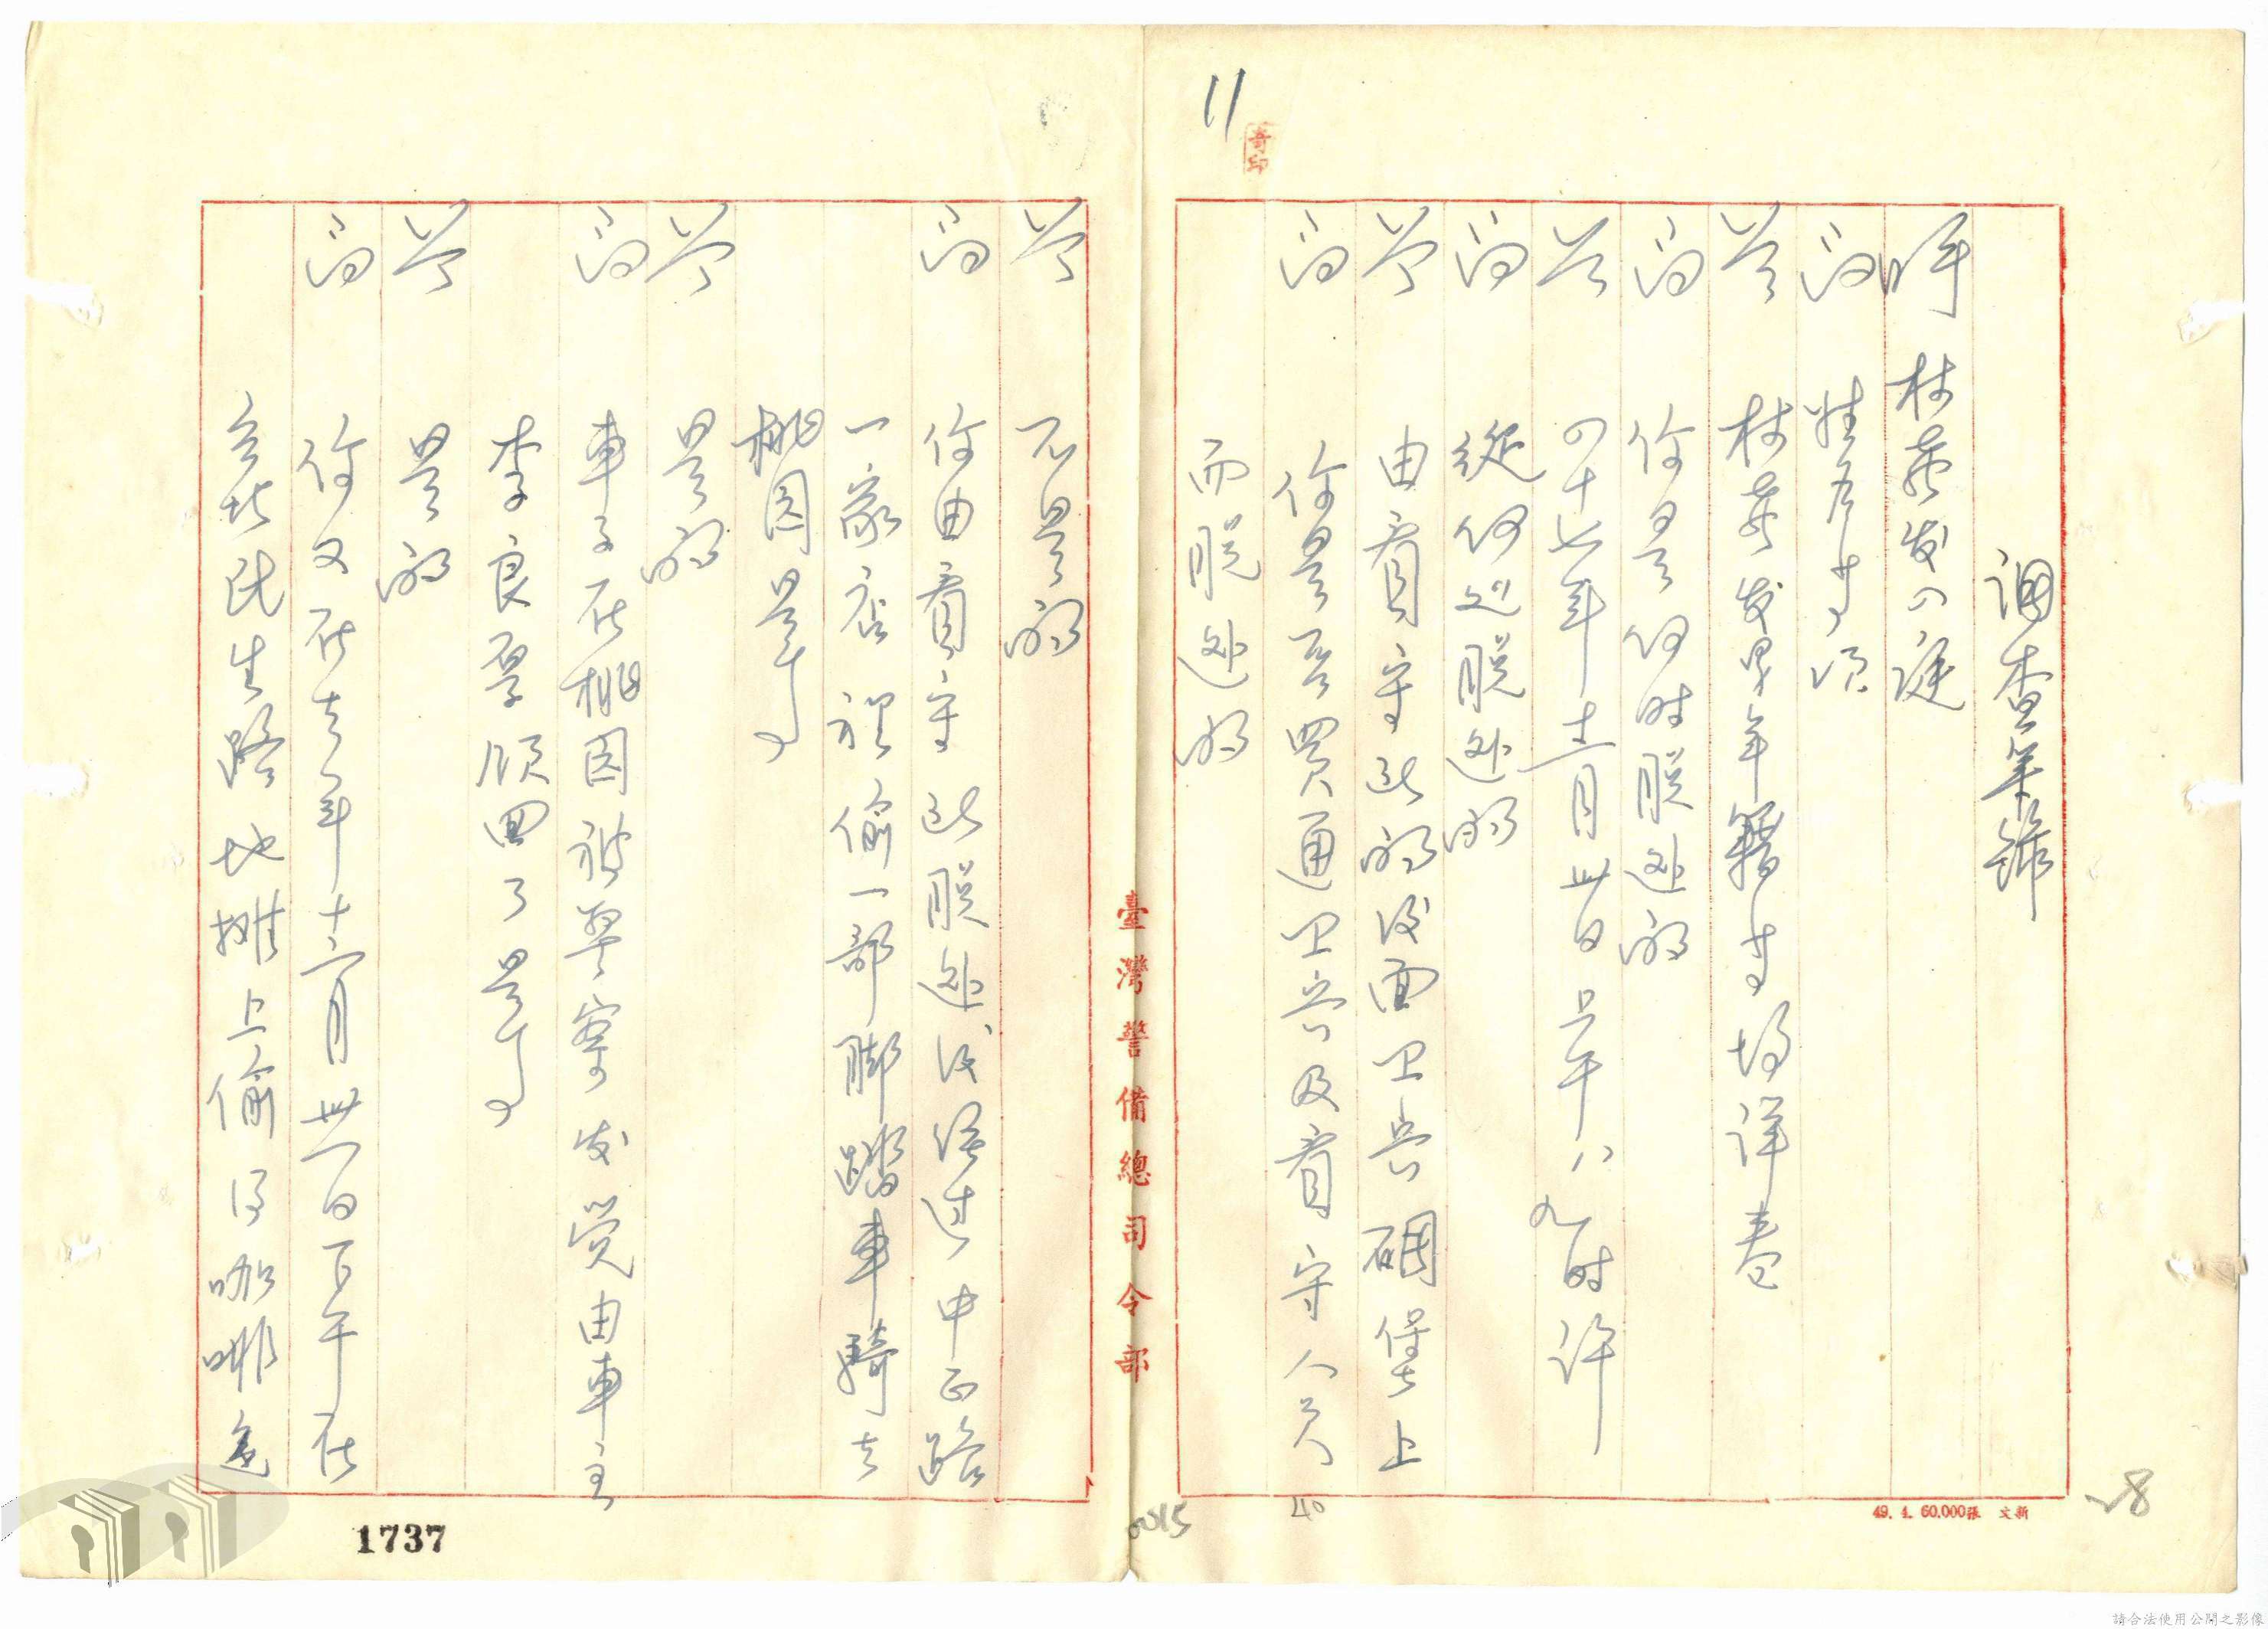 11
調查筆錄
林茂发入庭
問 姓名等項
答 林茂发男年籍等均詳卷
問 你是何時脫逃的
答 四十七年十二月卅日上午八九時許
問 從何処脫逃的
答 由看守所的后面卫兵碉堡上
問 你是否買通卫兵及看守人員
而脫逃的
答 不是的
問 你由看守所脫逃后經过中正路
一家店裡偷一部脚踏車騎去
桃园是嗎
答 是的
問 車子在桃园被警察发覚由車主
李良 領回了是嗎
答 是的
問 你又在去年十二月卅一日下午在
台北民生路地攤上偷了咖啡色
臺灣警備總司令部
49. 4. 60.000張 文新
28
40
0015
1737
請合法使用公開之影像